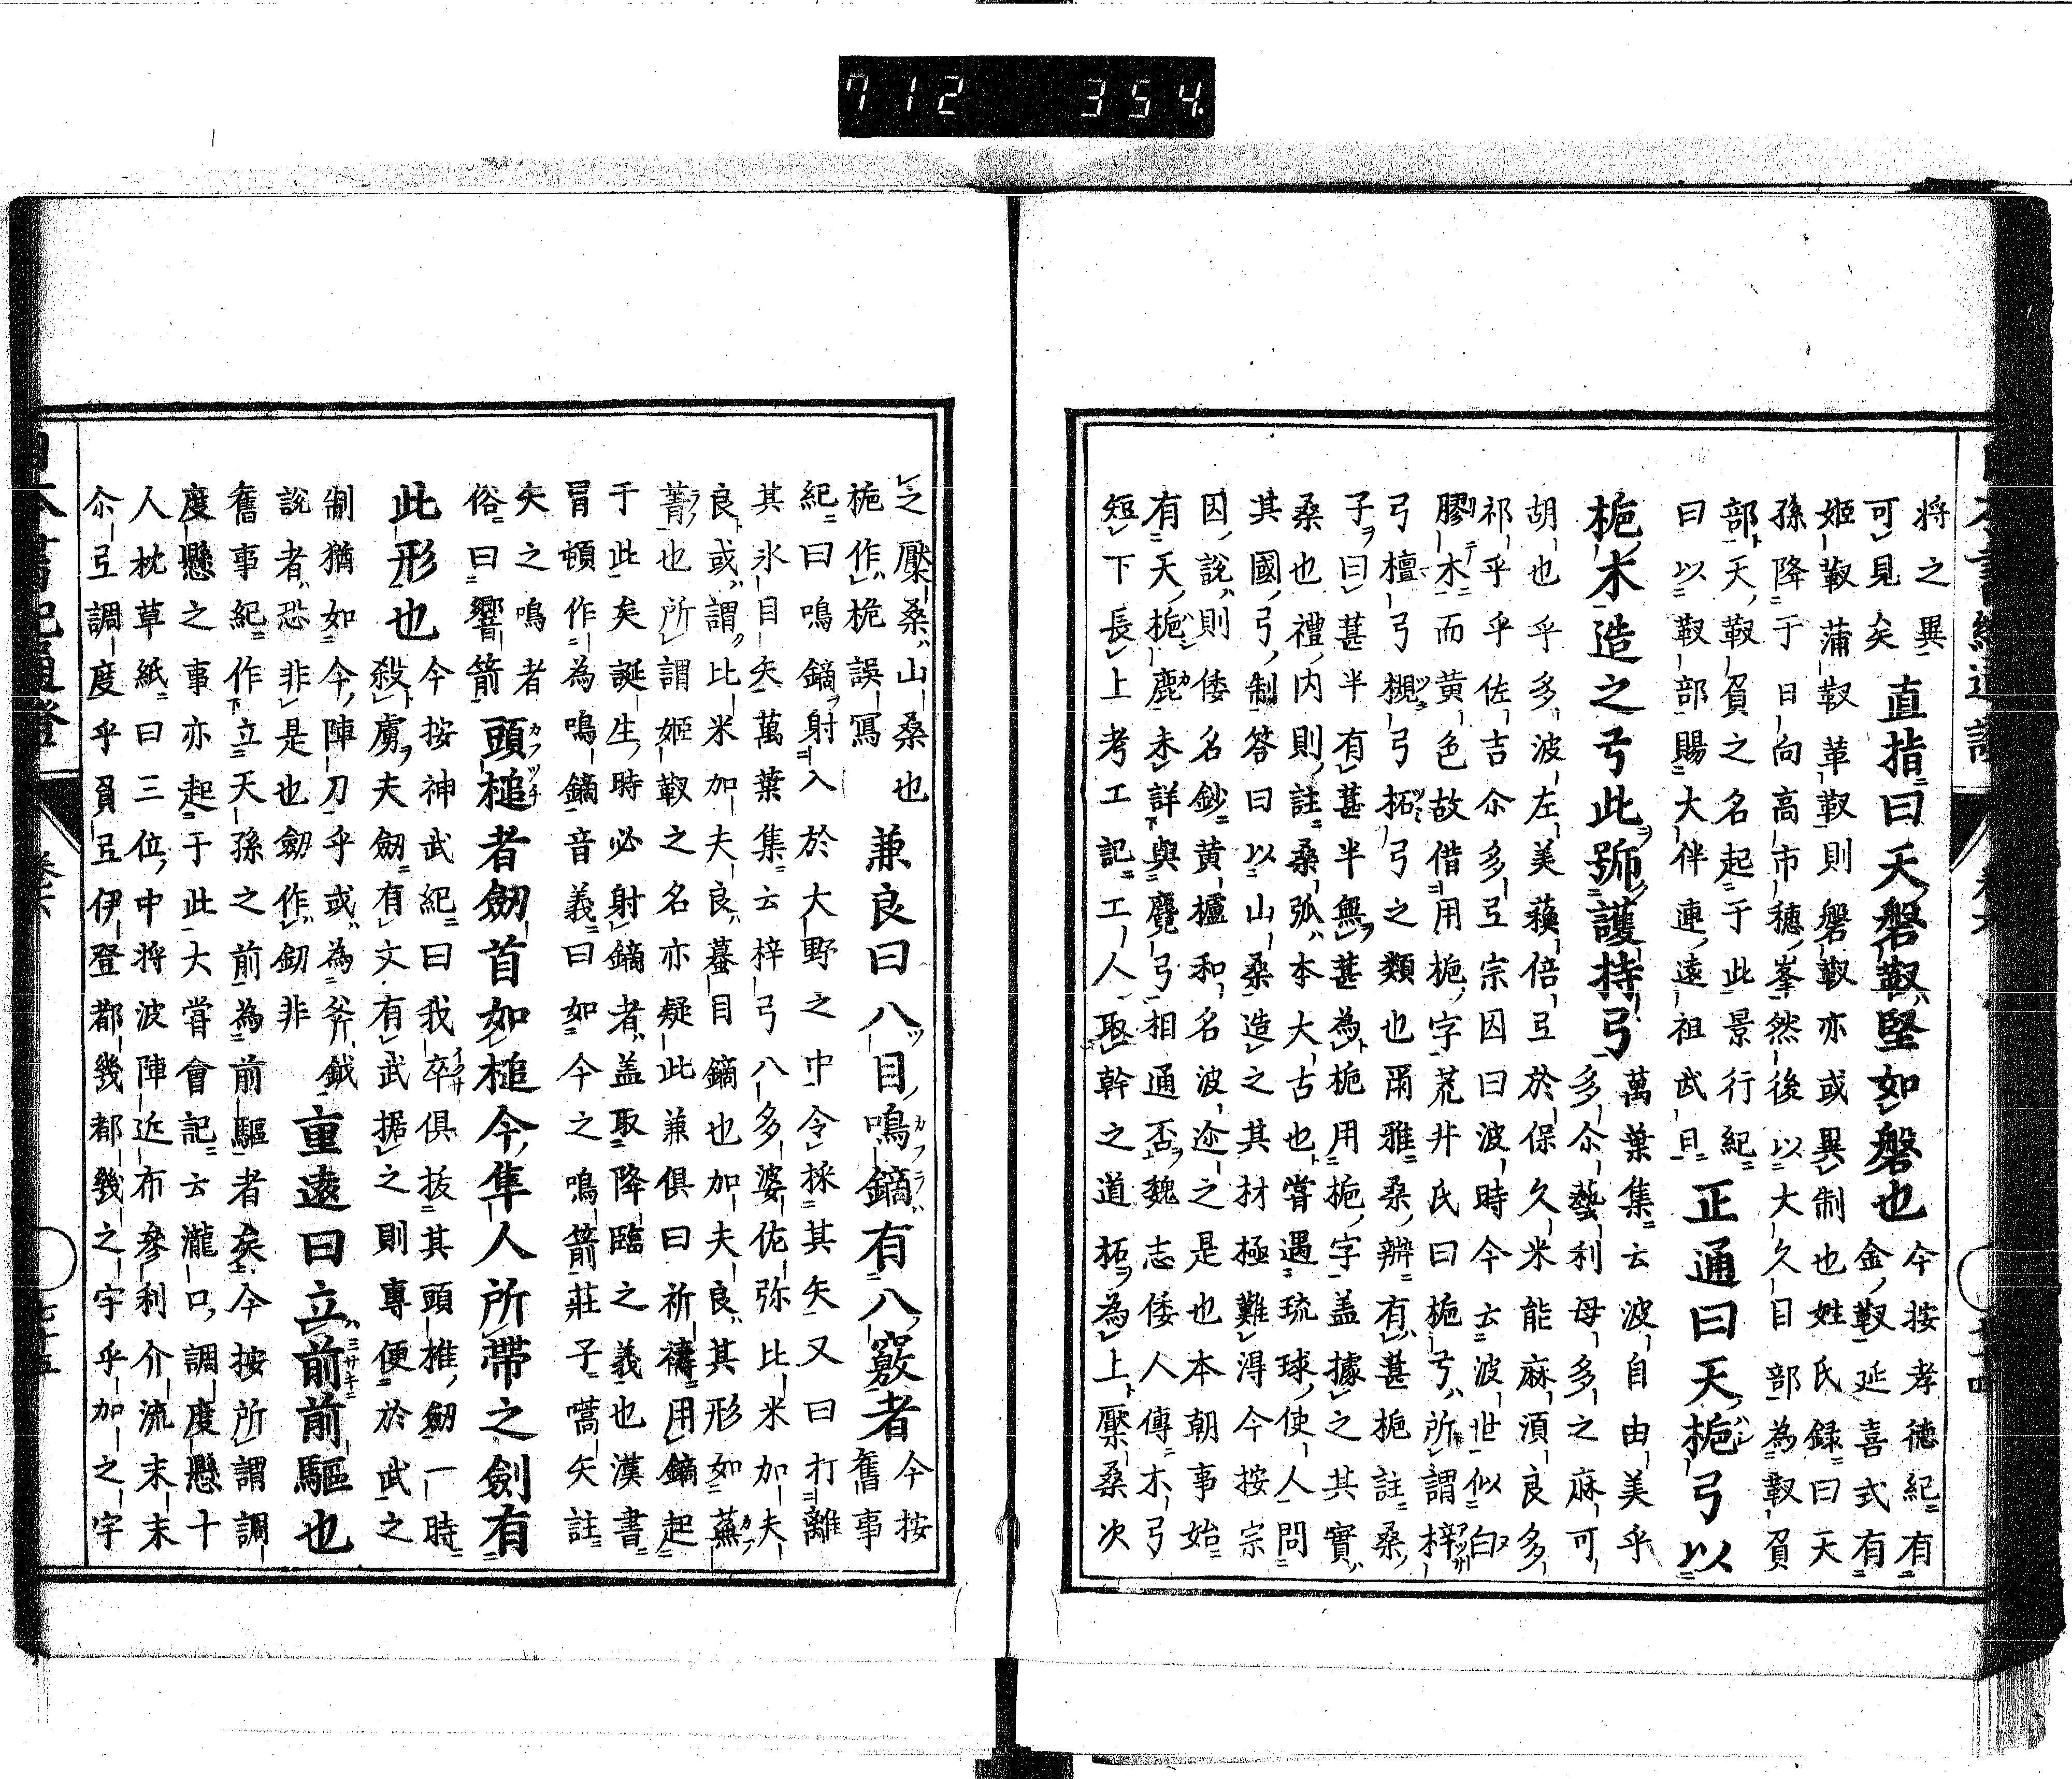 712 354
將之異
可見矣 直指曰天磐靫堅如磐也 今按孝德紀有
金靫延喜式有
姬靫蒲靫革靫則磐靫亦或異制也姓氏錄曰天
孫降于日向高市穗峯然後以大久目部為靫負
部天靫負之名起于此景行紀
曰以靫部賜大伴連遠祖武日 正通曰天梔弓以
梔木造之弓此號護持弓 萬葉集云波自由美乎
多尒藝利母多之麻可
胡也乎多波左美蘓倍弖於保久米能麻須良多
祁乎乎佐吉尒多弖宗因曰波時今云波世似白
膠木而黃色故借用梔字荒井氏曰梔弓所謂梓
弓檀弓槻弓柘弓之類也爾雅桑辨有葚梔註桑
子曰葚半有葚半無葚為梔用梔字盖據之其實
桑也禮內則註桑弧本大古也嘗遇琉球使人問
其國弓制答曰以山桑造之其材極難得今按宗
因說則倭名鈔黃櫨和名波迩之是也本朝事始
有天梔鹿未詳與麑弓相通否魏志倭人傳木弓
短下長上考工記工人取幹之道柘為上檿桑次
之檿桑山桑也
梔作桅誤寫 兼良曰八目鳴鏑有八竅者 今按
舊事
紀曰鳴鏑射入於大野之中令採其矢又曰打離
其氷目矢萬葉集云梓弓八多婆佐弥比米加夫
良或謂比米加夫良蟇目鏑也加夫良其形如蕪
菁也所謂姬靫之名亦疑此兼俱曰祈禱用鏑起
于此矣誕生時必射鏑者盖取降臨之義也漢書
冒頓作為鳴鏑音義曰如今之鳴箭莊子嚆矢註
矢之鳴者
俗曰響箭 頭槌者劒首如槌今隼人所帶之劍有
此形也 今按神武紀曰我卒俱拔其頭椎劒一時
殺虜夫劒有文有武据之則專便於武之
制猶如今陣刀乎或為斧鉞
說者恐非是也劒作釰非 重遠曰立前前驅也
舊事紀作立天孫之前為前驅者矣今按所謂調
度懸之事亦起于此大嘗會記云瀧口調度懸十
人枕草紙曰三位中將波陣近布參利介流末末
尒弖調度乎負弖伊登都幾都幾之宇乎加之宇